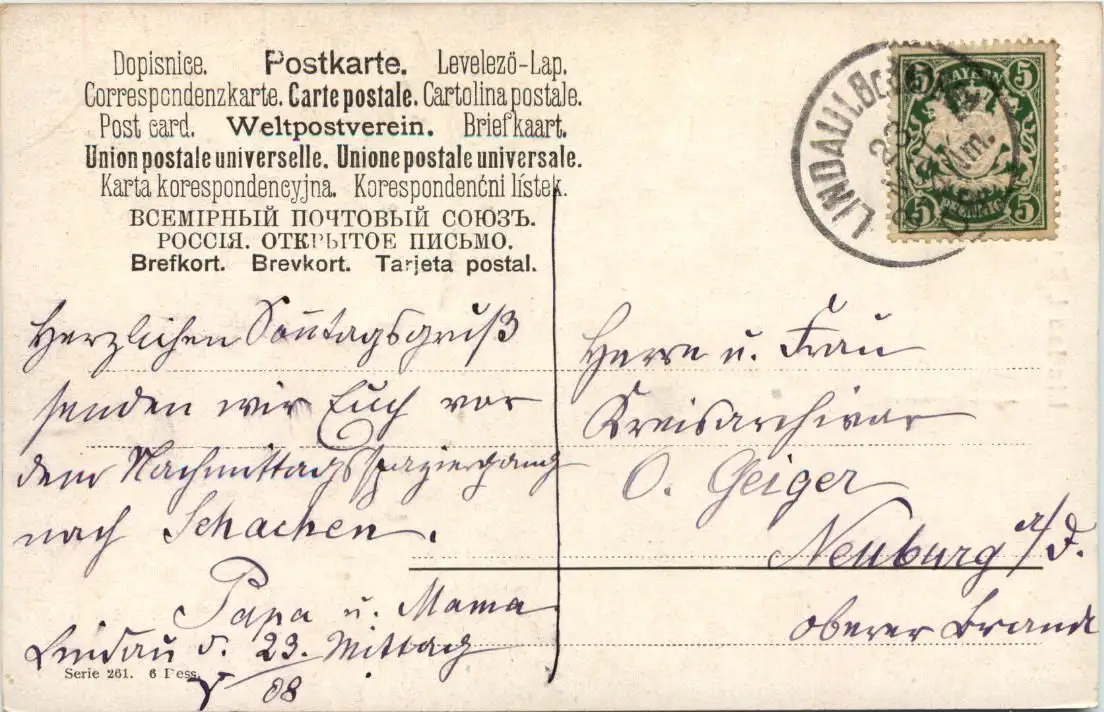 Dopisnice. Postkarte. Levelező-Lap.
Correspondenzkarte. Carte postale. Cartolina postale.
Post card. Weltpostverein. Briefkaart.
Union postale universelle. Unione postale universale.
Karta korespondencyjna. Korespondenčni lístek.
ВСЕМІРНЫЙ ПОЧТОВЫЙ СОЮЗЪ.
РОССІЯ. ОТКРЫТОЕ ПИСЬМО.
Brefkort. Brevkort. Tarjeta postal.
Herzlichen Sonntagsgruß
senden wir Euch vor
dem Nachmittagsspaziergang
nach Schachen.
Papa u. Mama
Lindau d. 23. Mittag
V 08
Serie 261. 6 Dess.
LINDAU I.B.
23
5 BAYERN 5
5 PFENNIG 5
Herrn u. Frau
Kreisarchivar
O. Geiger
Neuburg a/d.
oberer Brandl